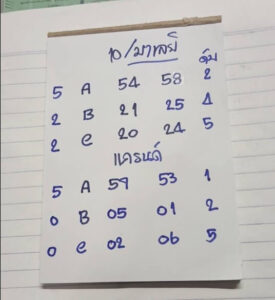 10/มาเลย์
5 A 54 58 2
2 B 21 25 4
2 C 20 24 5
แกรนด์
5 A 59 53 1
0 B 05 01 2
0 C 02 06 5